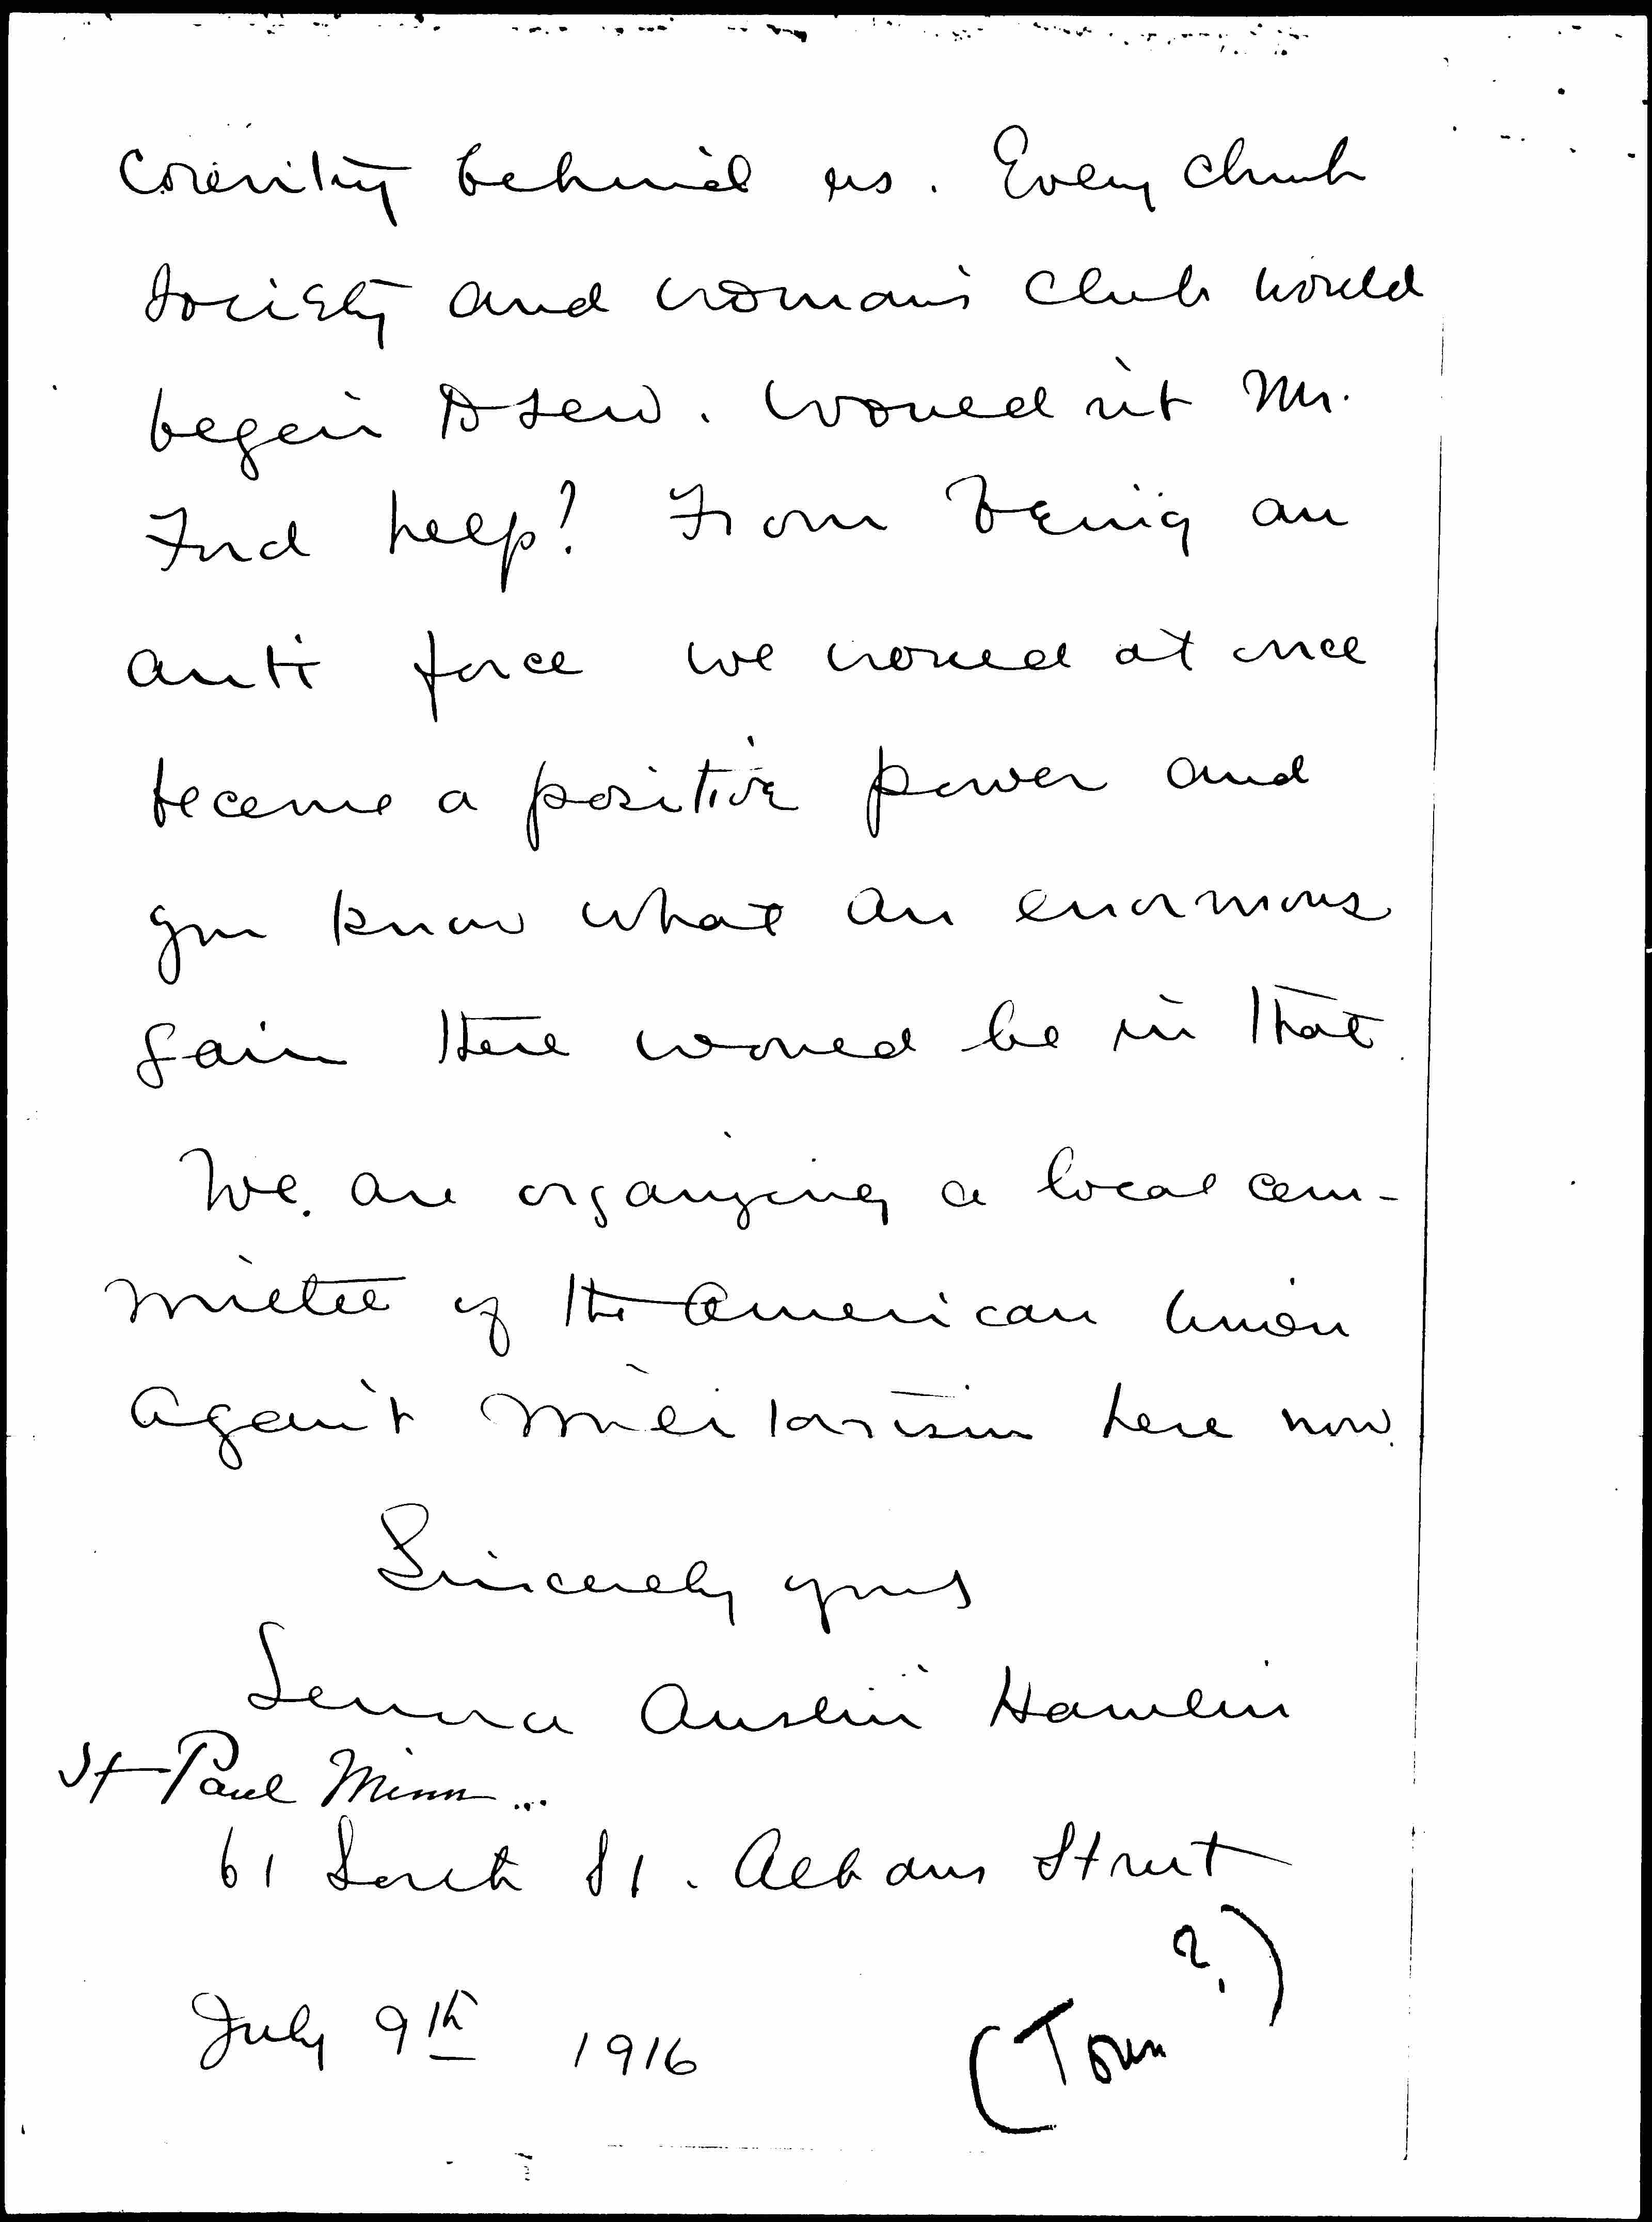 country behind us. Every church
society and woman's club would
begin to sew. Would n't Mr.
Ford help? From being an
anti force we would at once
become a positive power and
you know what an enormous
gain there would be in that.
We are organizing a local com-
mittee of the American Union
against militarism here now.
Sincerely yours
Austin Hamlin
St Paul Minn...
61 South St. Albans Street
July 9th 1916
(Town?)